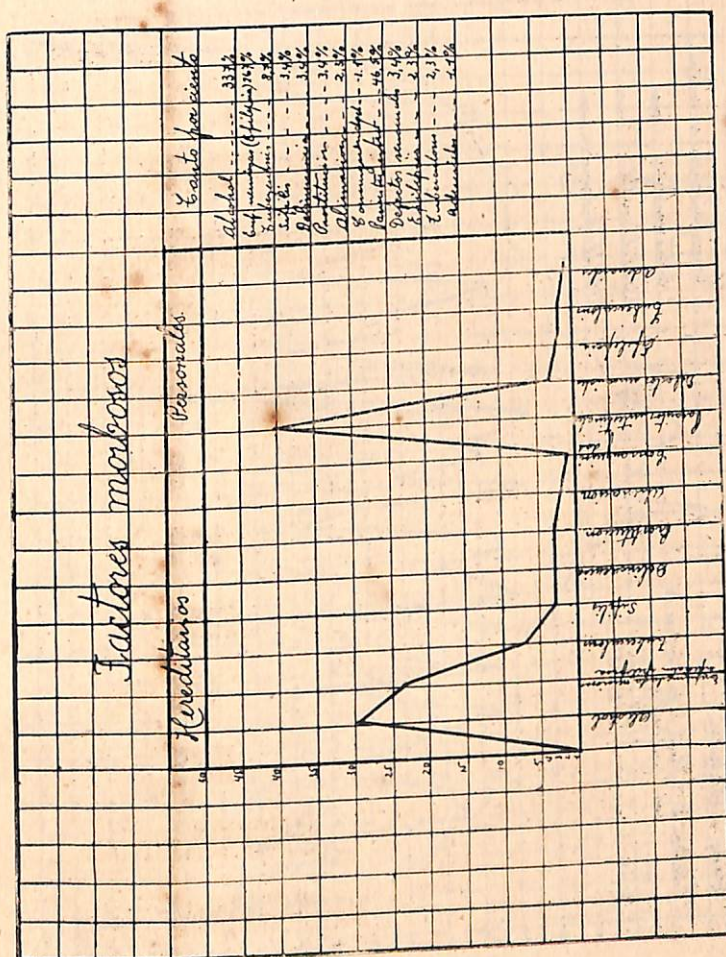 Factores morbosos
Hereditarios
Personales
Tanto por ciento
Alcohol ---- 33,7%
Enf. nerviosas (Epilepsia)
Tuberculosis
Sífilis --- 3,4%
Delincuencia --- 3,4%
Prostitución --- 3,4%
Alienación --- 2,3%
Consanguinidad -- 1.1%
Paratritentes --- 46,5%
Defectos sensoriales 3,4%
Epilepsia --- 2,3%
Tuberculosis --- 2,3%
Adenoides --- 1.1%
50
45
40
35
30
25
20
15
10
5
Alcohol
Tuberculosis
Sífilis
Delincuencia
Prostitución
Alienación
Consanguini
dad
Epilepsia
Tuberculosis
Adenoides